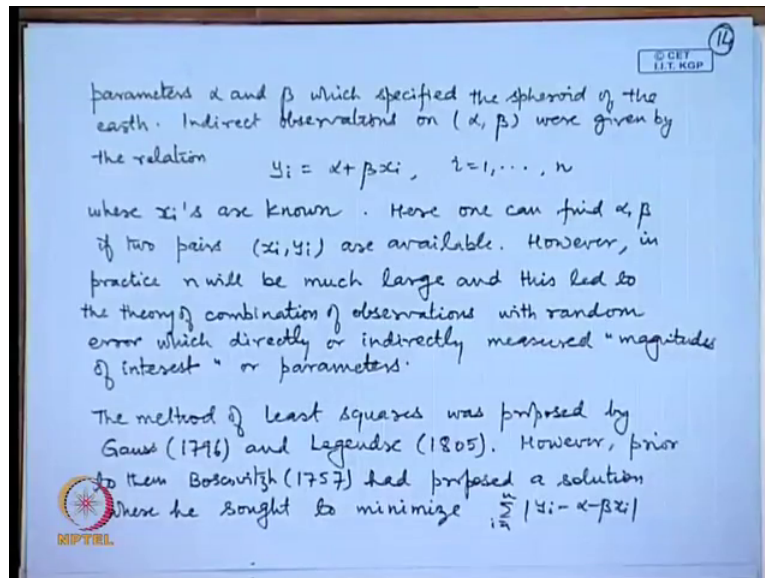 14
© CET
I.I.T. KGP
parameters α and β which specified the spheroid of the
earth. Indirect observations on (α, β) were given by
the relation
yi = α + βxi, i=1, ..., n
where xi's are known. Here one can find α, β
if two pairs (xi, yi) are available. However, in
practice n will be much large and this led to
the theory of combination of observations with random
error which directly or indirectly measured "magitudes
of interest" or parameters.
The method of least squares was proposed by
Gauss (1796) and Legendre (1805). However, prior
to them Boscovitzh (1757) had proposed a solution
where he sought to minimize Σ |yi - α - βxi|
NPTEL